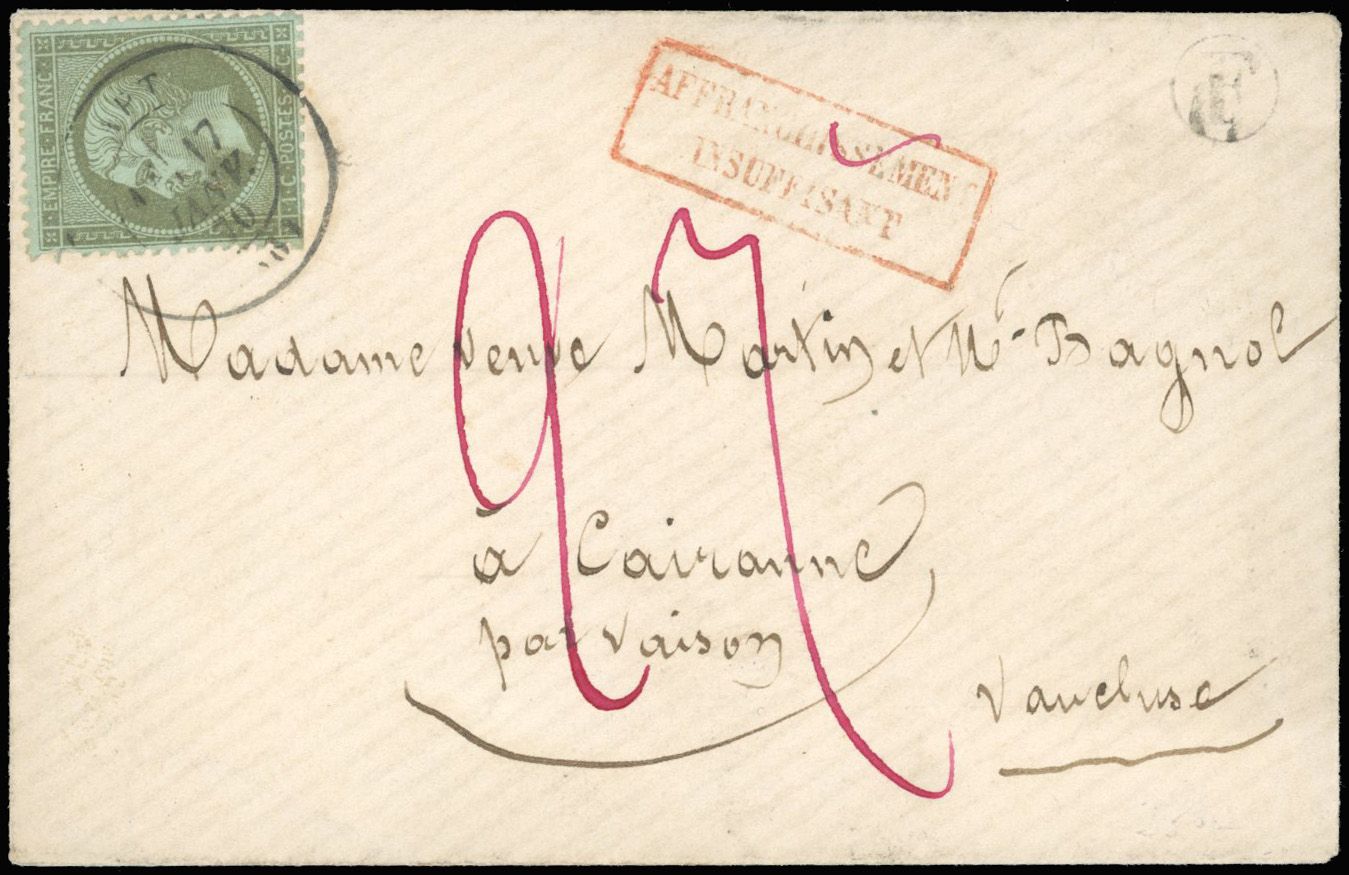 EMPIRE·FRANC·
1·C·POSTES·1·C·
17
JANV.
AFFRANCHISSEMENT
INSUFFISANT
Madame veuve Martin et Mr Bagnol
à Cairanne
par Vaison
Vaucluse